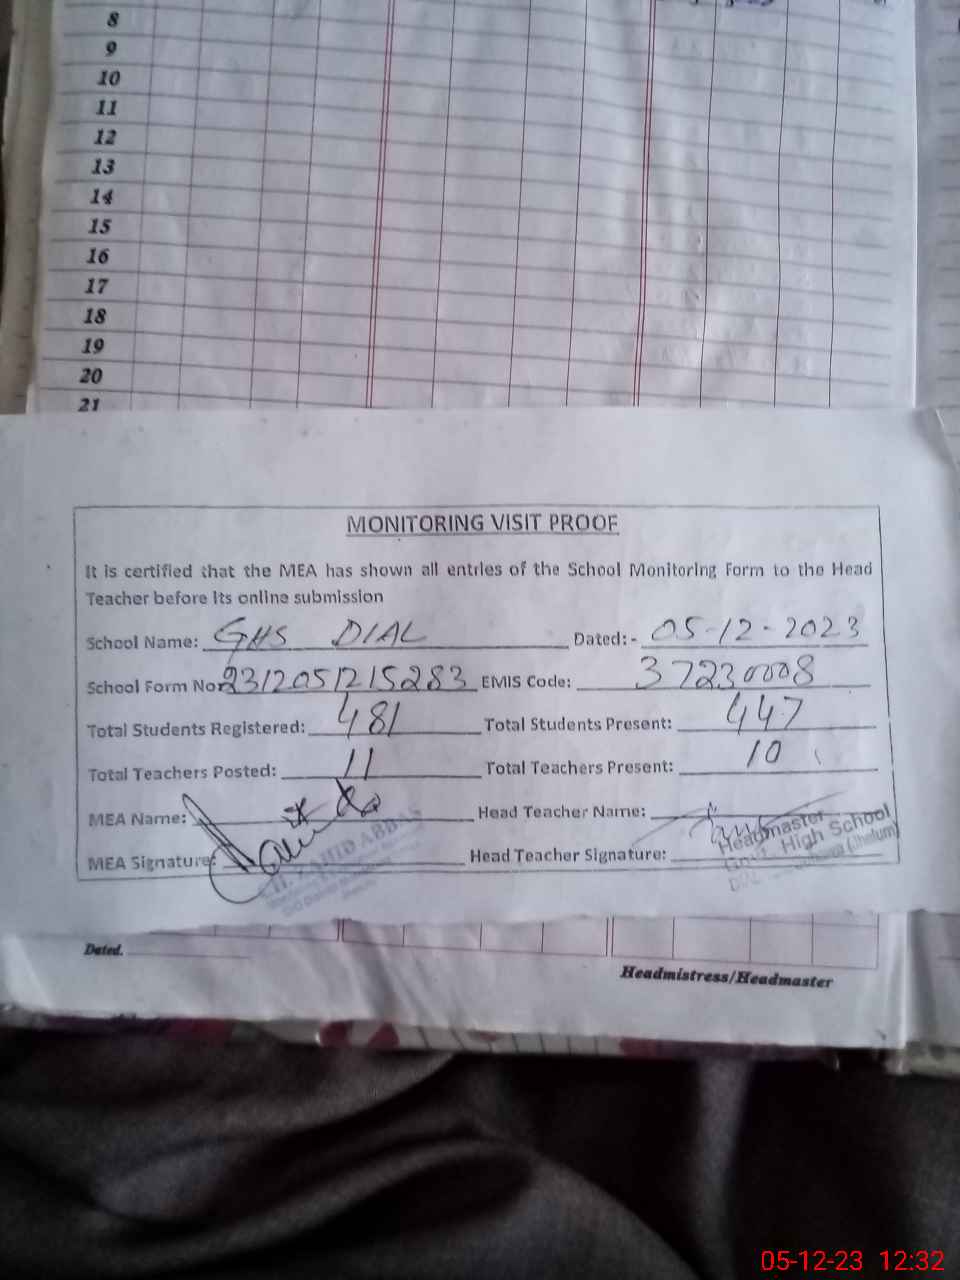 8
9
10
11
12
13
14
15
16
17
18
19
20
21
MONITORING VISIT PROOF
It is certified that the MEA has shown all entries of the School Monitoring Form to the Head
Teacher before its online submission
School Name: GHS DIAL Dated:- 05-12-2023
School Form No: 2312051215283 EMIS Code: 37230008
Total Students Registered: 481 Total Students Present: 447
Total Teachers Posted: 11 Total Teachers Present: 10
MEA Name: Head Teacher Name:
MEA Signature: Head Teacher Signature:
ABBAS
Headmaster
Govt. High School
(Jhelum)
Dated.
Headmistress/Headmaster
05-12-23 12:32